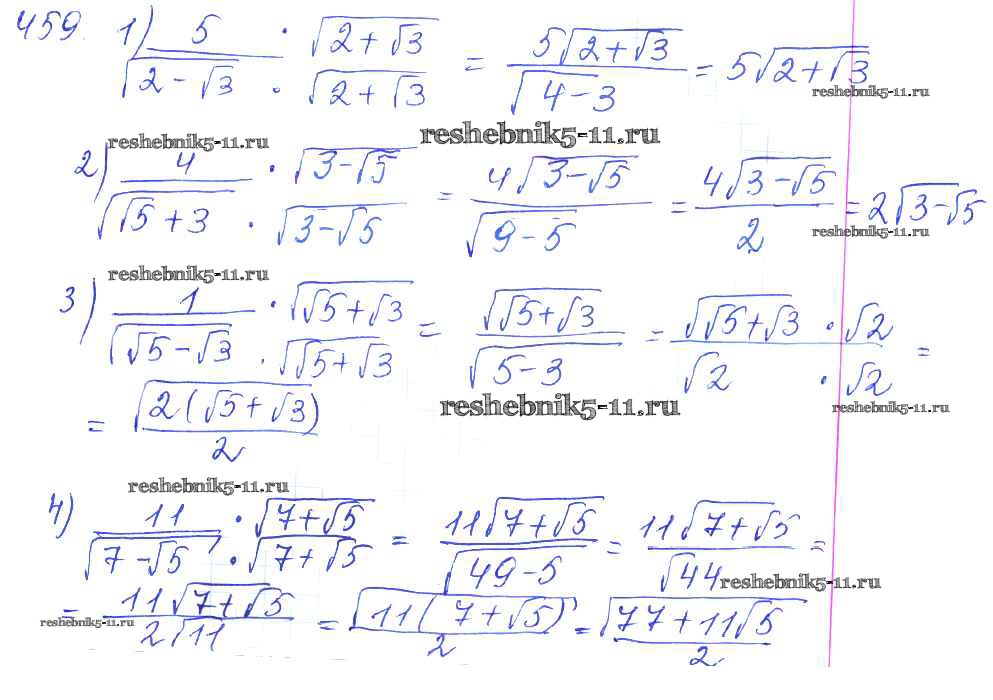 459. 1) 5/√(2-√3) · √(2+√3)/√(2+√3) = 5√(2+√3)/√(4-3) = 5√(2+√3)
reshebnik5-11.ru
reshebnik5-11.ru reshebnik5-11.ru
2) 4/√(√5+3) · √(3-√5)/√(3-√5) = 4√(3-√5)/√(9-5) = 4√(3-√5)/2 = 2√(3-√5)
reshebnik5-11.ru
reshebnik5-11.ru
3) 1/√(√5-√3) · √(√5+√3)/√(√5+√3) = √(√5+√3)/√(5-3) = √(√5+√3)/√2 · √2/√2 =
reshebnik5-11.ru reshebnik5-11.ru
= √(2(√5+√3))/2
reshebnik5-11.ru
4) 11/√(7-√5) · √(7+√5)/√(7+√5) = 11√(7+√5)/√(49-5) = 11√(7+√5)/√44 =
reshebnik5-11.ru
= 11√(7+√5)/2√11 = √(11(7+√5))/2 = √(77+11√5)/2
reshebnik5-11.ru